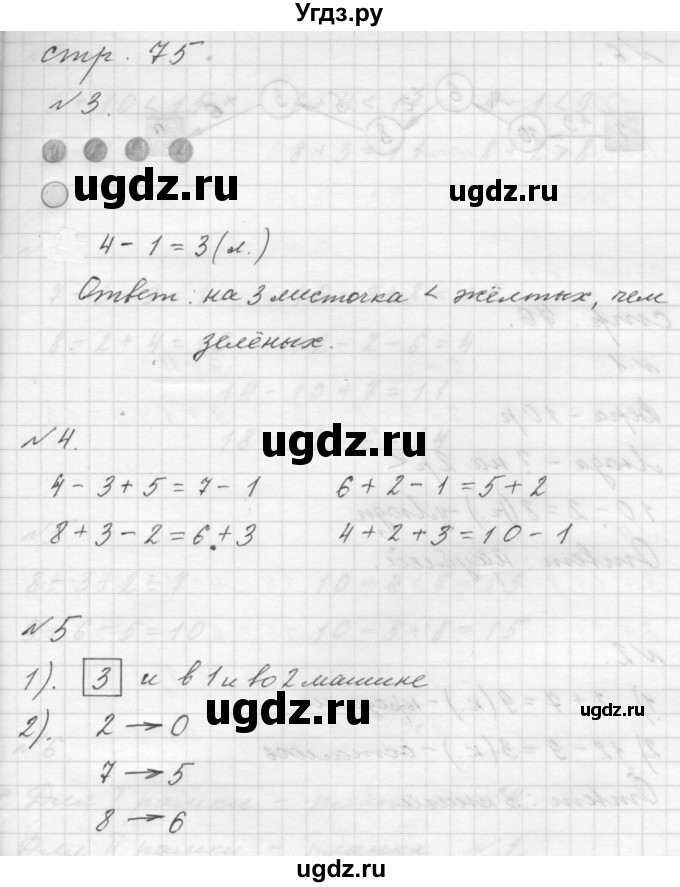 Угдз.ру
стр. 75.
№3.
ugdz.ru
ugdz.ru
4 - 1 = 3 (л.)
Ответ: на 3 листочка < жёлтых, чем
зелёных.
№4.
ugdz.ru
ugdz.ru
4 - 3 + 5 = 7 - 1 6 + 2 - 1 = 5 + 2
8 + 3 - 2 = 6 + 3 4 + 2 + 3 = 10 - 1
№5
1). 3 и в 1 и во 2 машине
ugdz.ru
ugdz.ru
2). 2 → 0
7 → 5
8 → 6
ugdz.ru